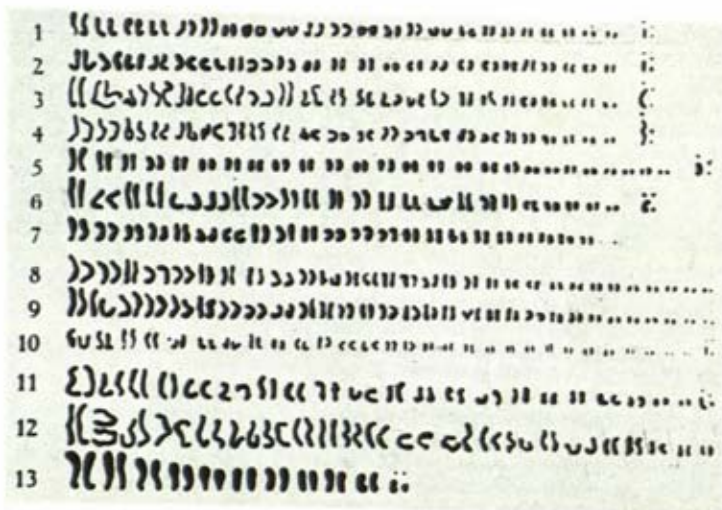 1
2
3
4
5
6
7
8
9
10
11
12
13